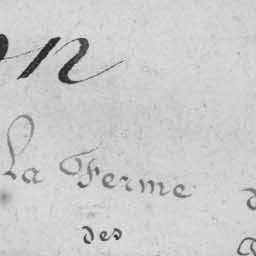 on
La Ferme d
des